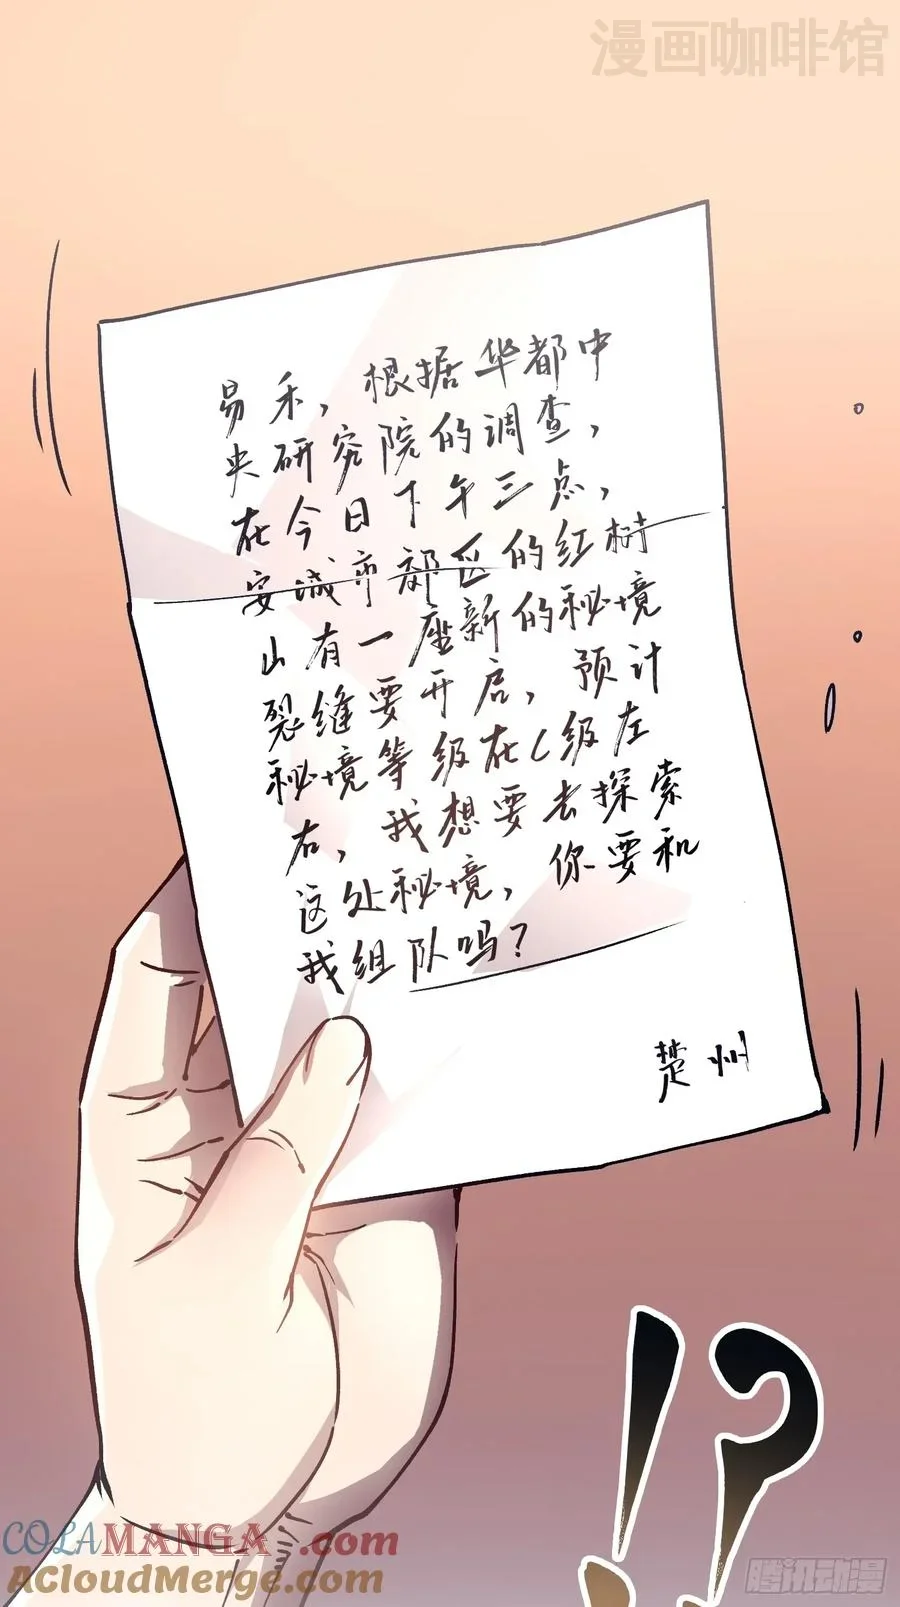 漫画咖啡馆
易禾，根据华都中
央研究院的调查，
在今日下午三点，
安城市郊区的红树
山有一座新的秘境
裂缝要开启，预计
秘境等级在C级左
右，我想要去探索
这处秘境，你要和
我组队吗？
楚州
!?
COLAMANGA.com
AcloudMerge.com
腾讯动漫